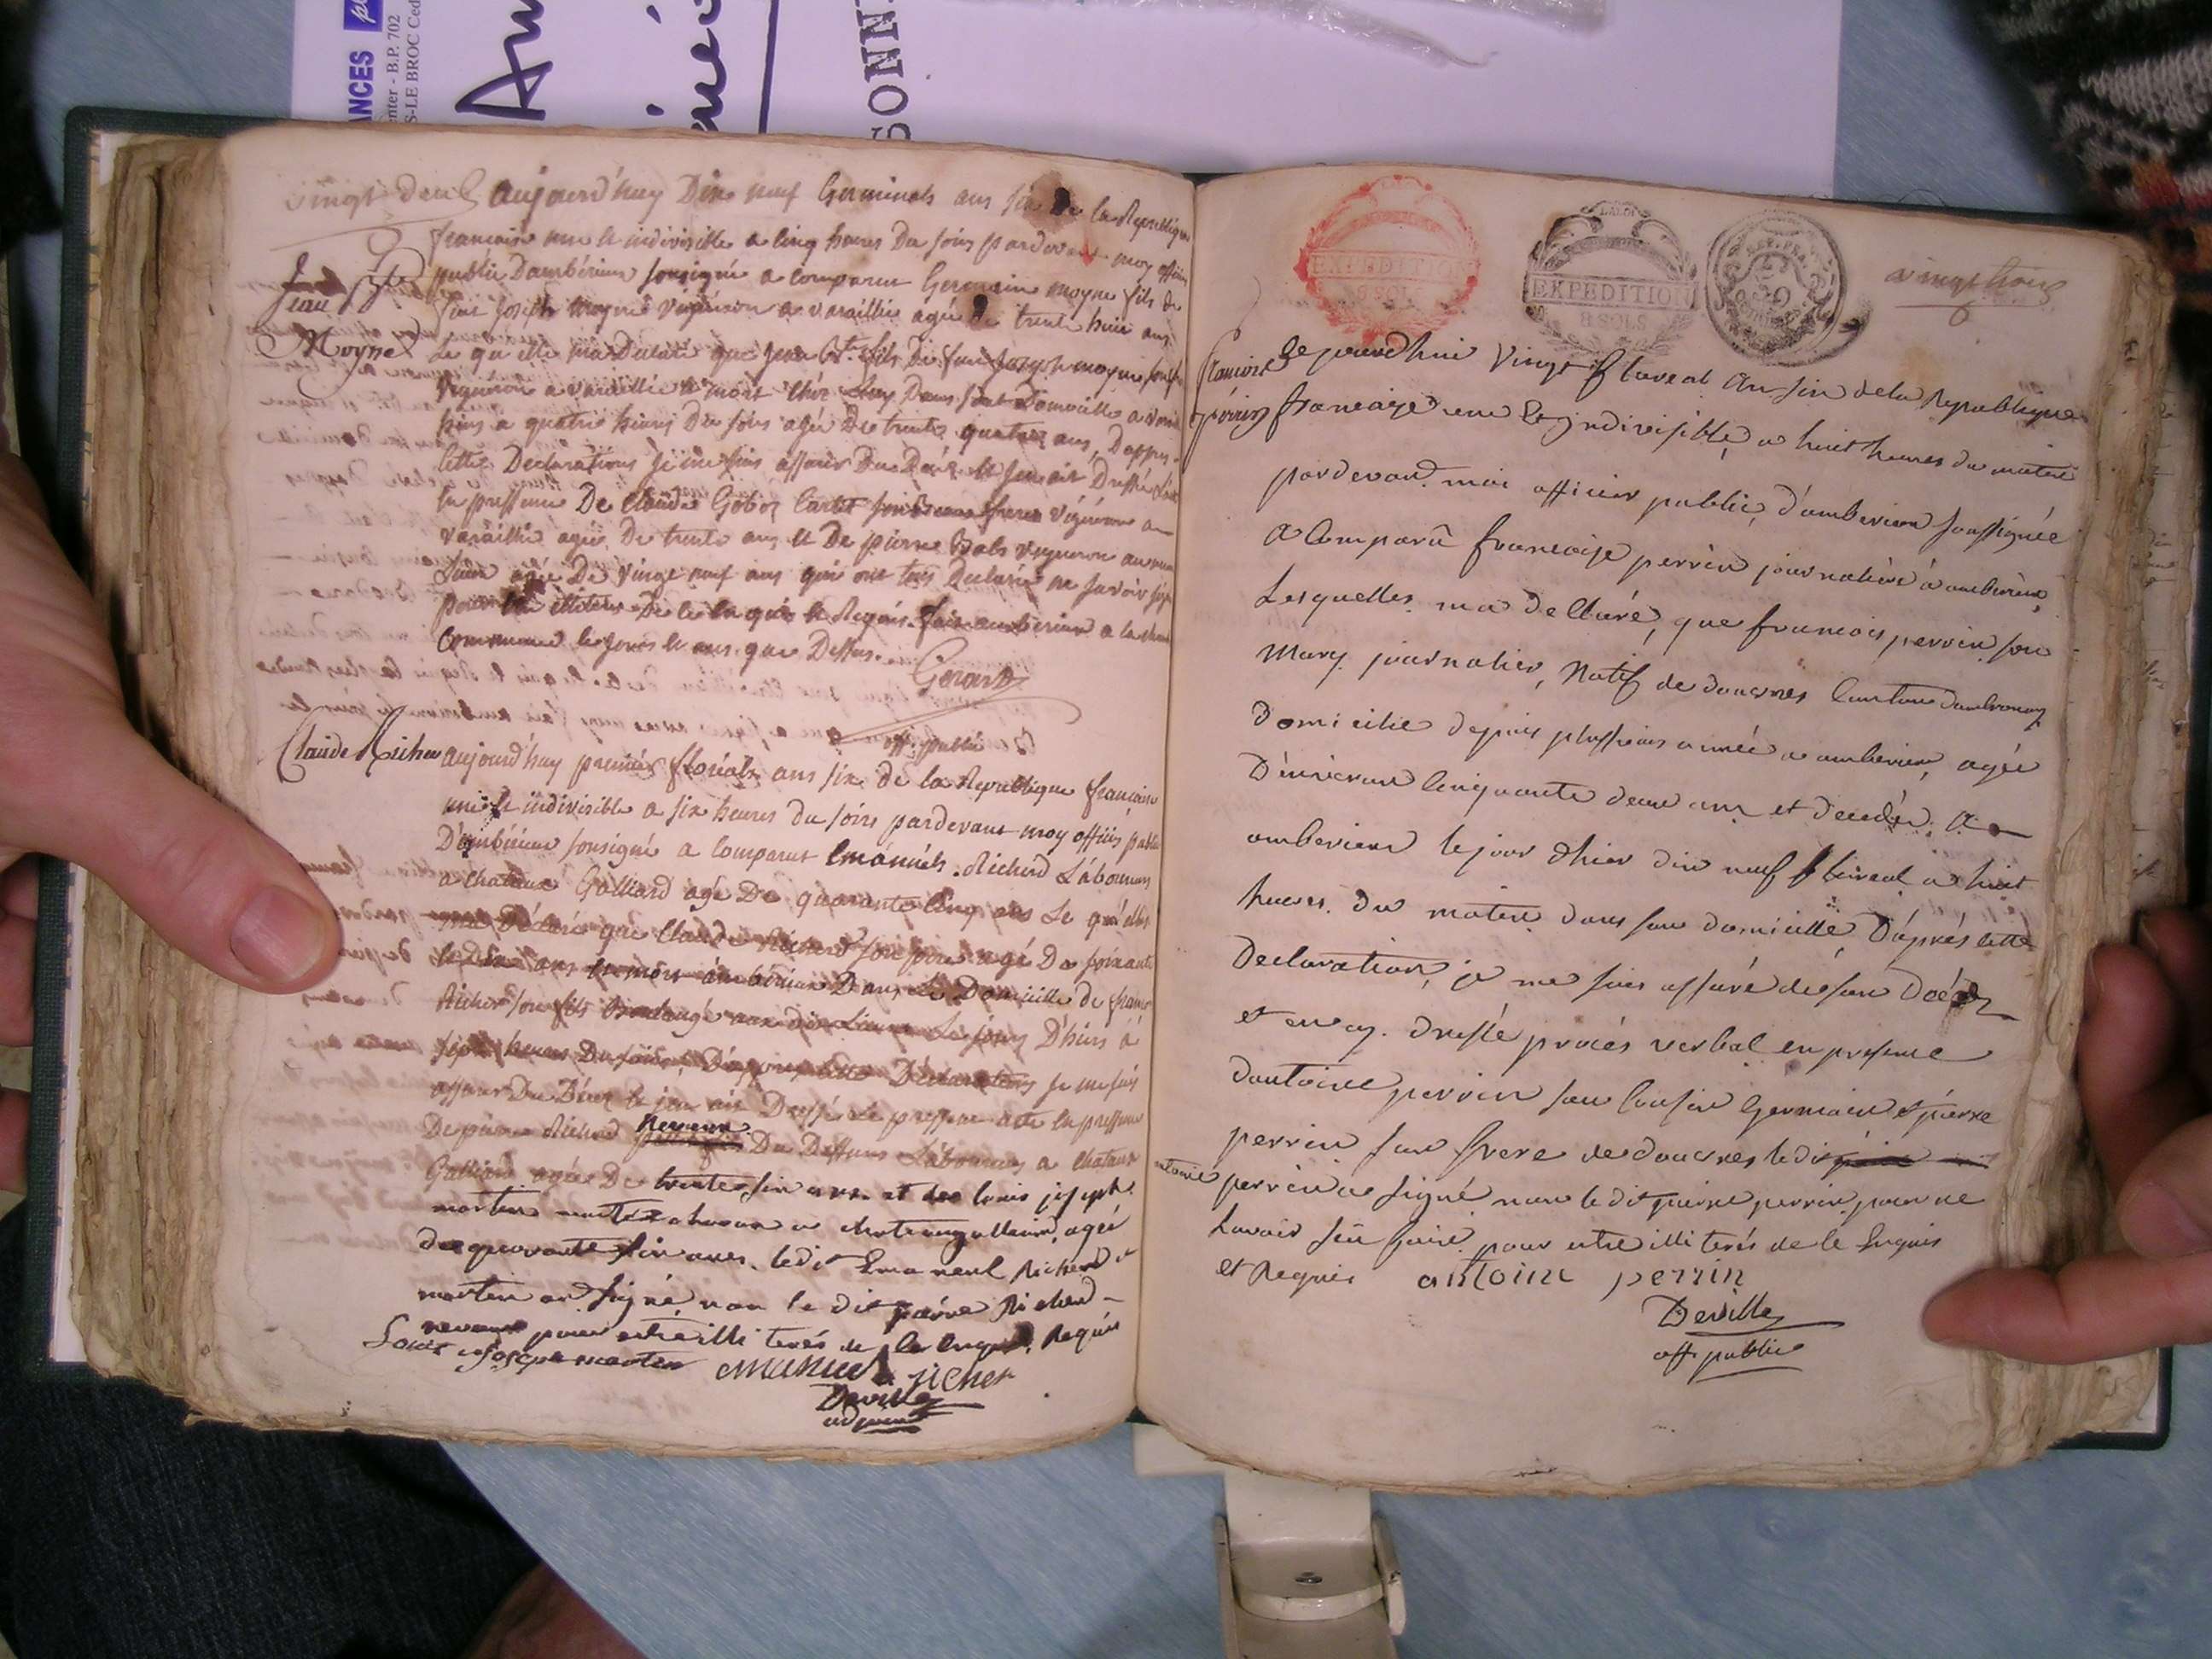 ANCES
B.P. 702
S-LE BROC Ced
SONN
vingt deux
aujourd'huy Dix neuf Germinals ans six De la Republique
francaise une et indivisible a cinq heures Du soirs pardevant moy officier
public Dambérieux sousigné a comparu Germain moyne fils de
feu Joseph moyne vigneron a varaillie agé De trente huit ans
Le qu'elle ma Declaré que Jean Bte fils De feu Joseph moyne
vigneron a varaillie et mort chez Luy Dans son Domicille a
hiers a quatre heures Du soirs agé De trente quatre ans, D'appres
cette Declarations Je me suis assurer Du Décez et Jen ait Dressé
En pressence De Claude Goboz Cartet son frere vigneron a
varaillie agée De trente ans et De pierre vigneron au
Lieux agée De vingt neuf ans qui ont tous Declaré ne savoir
pour illiterés De ce Enquis et Requis. fait amberieux a la
Commune les jours et ans que Dessus.
Gerard
off. public
Jean Bte
Moyne
Claude Richer
aujourd'huy premier floréals ans six de la Republique francaise
une et indivisible a six heures du soirs pardevant moy officier public
D'ambérieux sousigné a comparut Emanuels Richerd Laboureurs
a chateaux Galliard agé De quarante cinq ans Le qu'elle
ma Déclaré que Claude Richerd son pere agé De soixante
et Dix ans et mort ambérieux Dans Le Domicille de
Richer son fils Boulangé au dix Lieux Le jours D'hiers à
sept heures Du soirs, D'appres cette Déclarations Je me suis
assurer Du Décez et jen ait Dressée Le pressent acte En pressence
De pierre Richerd neveux Du Deffunt Laboureurs a chateaux
Galliard agée De trente six ans et de louis joseph
martin a chateaugalliard, agée
de quarante six ans. ledit Emanuel Richerd et
martin on signé, non le dit pierre Richerd
neveux pour estre illi terés de ce enquis, Requis
Louis joseph martin emanuel richer
Deville
adjoint
EXPEDITION
8 SOLS
EXPEDITION
8 SOLS
vingt trois
francois
perrin
Ce jourd'hui vingt floreal An six de la Republique
francaize une et indivisible, a huit heures du matin
pardevand moi officier public, d'amberieux soussignée
A Comparû francoise perrin journaliere a amberieux
Lesquelles ma de Claré, que francois perrin son
Mary journalier, Natif de douvres Canton dambronay
Domicilié depuis plussieurs année a amberieux, agée
D'environ Cinquante deux ans et décedé, A
amberieux le jour d'hier dix neuf floreal a huit
heures. du matin dans son domicille, D'aprés cette
Declaration, je me suis assuré de son Décez
et en ay. dressé procés verbal en presence
dantoine perrin son Cousin Germain et pierre
perrin son frere de douvres ledit
antoine perrin a signé non le dit pierre perrin. pour ne
Savoir sûe faire pour estre illi terés de ce Enquis
et Requis antoine perrin
Deville
off public